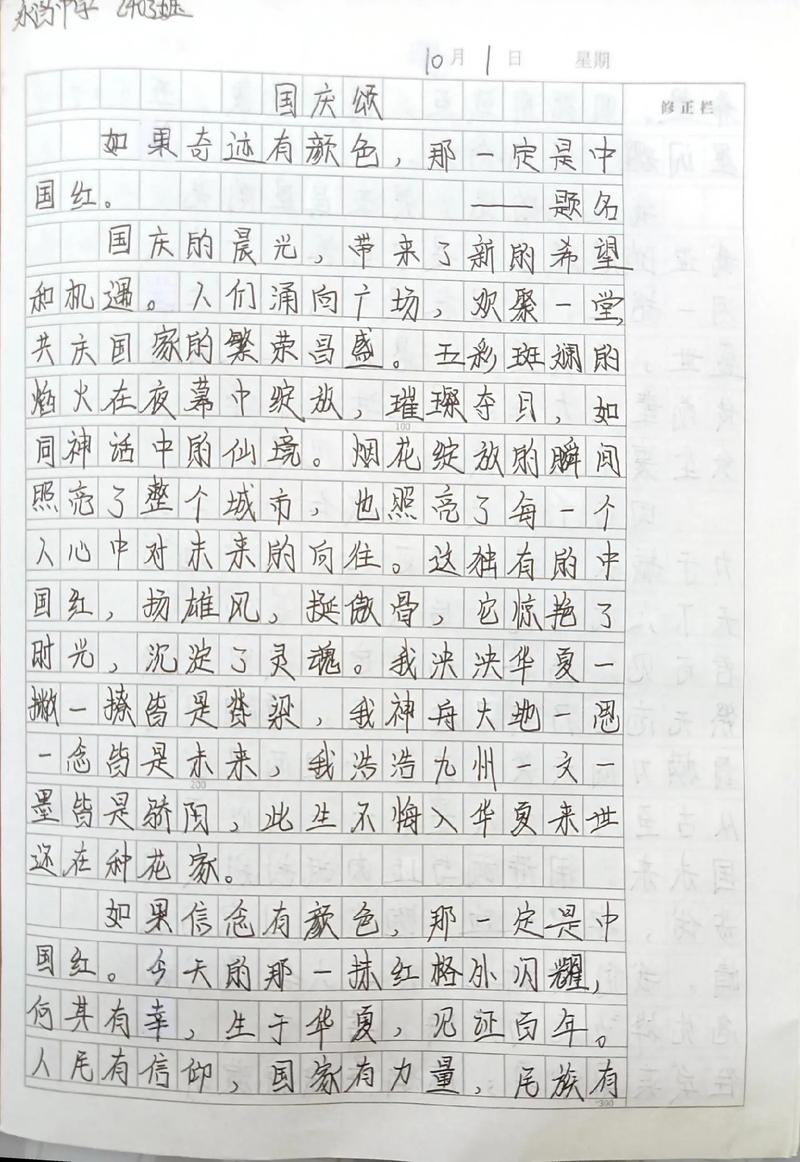 中学 2403班
10月1日 星期
修正栏
国庆颂
如果奇迹有颜色，那一定是中
国红。 ——题名
国庆的晨光，带来了新的希望
和机遇。人们涌向广场，欢聚一堂，
共庆国家的繁荣昌盛。五彩斑斓的
焰火在夜幕中绽放，璀璨夺目，如
同神话中的仙境。烟花绽放的瞬间
100
照亮了整个城市，也照亮了每一个
人心中对未来的向往。这独有的中
国红，扬雄风，挺傲骨，它惊艳了
时光，沉淀了灵魂。我泱泱华夏一
撇一捺皆是脊梁，我神舟大地一思
一念皆是未来，我浩浩九州一文一
200
墨皆是骄阳，此生不悔入华夏来世
还在种花家。
如果信念有颜色，那一定是中
国红。今天的那一抹红格外闪耀，
何其有幸，生于华夏，见证百年。
人民有信仰，国家有力量，民族有
300